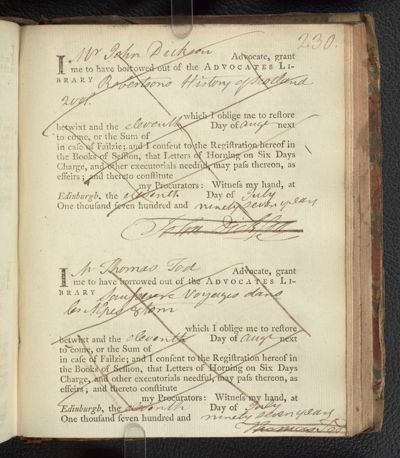 230.
I Mr John Dickson Advocate, grant
me to have borrowed out of the ADVOCATES LI-
BRARY Robertsons History of Scotland
2 vol.
which I oblige me to reſtore
betwixt and the eleventh Day of augt next
to come, or the Sum of
in caſe of Failzie; and I conſent to the Regiſtration hereof in
the Books of Seſſion, that Letters of Horning on Six Days
Charge, and other executorials needful, may paſs thereon, as
effeirs; and thereto conſtitute
my Procurators: Witneſs my hand, at
Edinburgh, the eleventh Day of July
One thouſand ſeven hundred and ninety seven years
John Dickson
I Mr Thomas Tod Advocate, grant
me to have borrowed out of the ADVOCATES LI-
BRARY Voyages dans
les Alpes
which I oblige me to reſtore
betwixt and the eleventh Day of augt next
to come, or the Sum of
in caſe of Failzie; and I conſent to the Regiſtration hereof in
the Books of Seſſion, that Letters of Horning on Six Days
Charge, and other executorials needful, may paſs thereon, as
effeirs; and thereto conſtitute
my Procurators: Witneſs my hand, at
Edinburgh, the eleventh Day of July
One thouſand ſeven hundred and ninety seven years
Thomas Tod